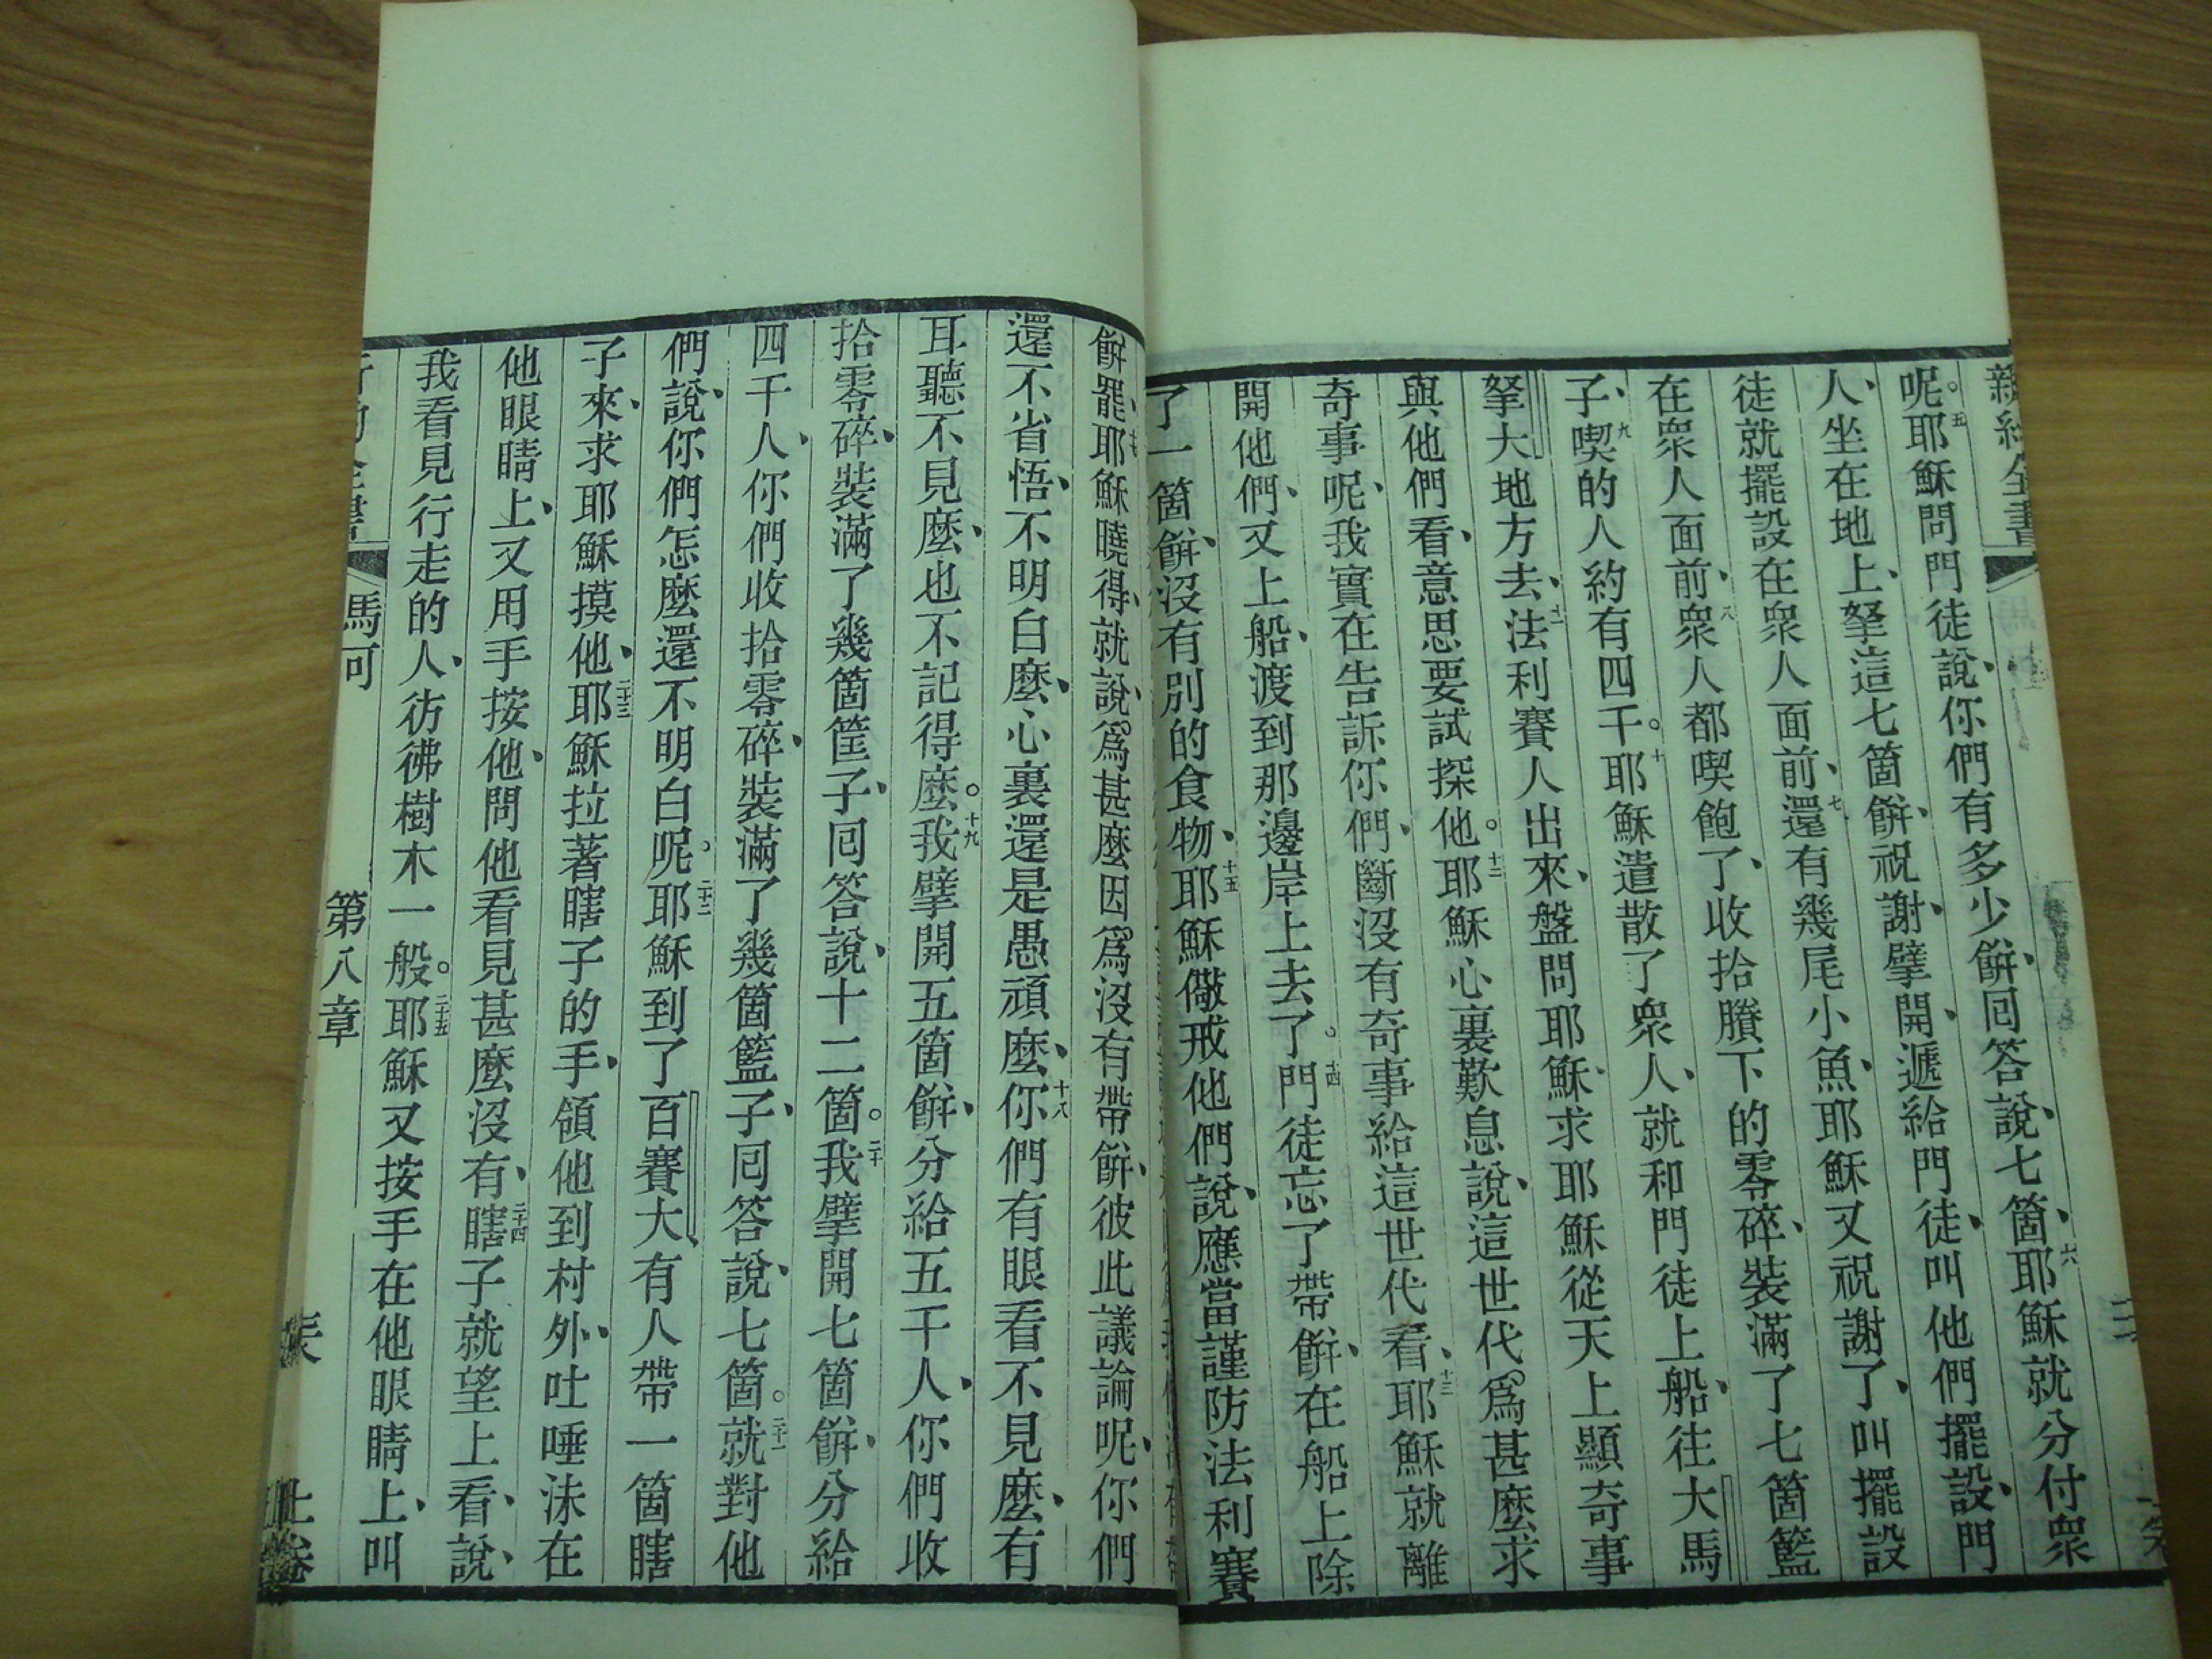 新約全書
呢。五耶穌問門徒說、你們有多少餅、回答說、七箇、六耶穌就分付衆
人、坐在地上、拏這七箇餅、祝謝、擘開、遞給門徒、叫他們擺設、門
徒就擺設在衆人面前、七還有幾尾小魚、耶穌又祝謝了、叫擺設
在衆人面前、八衆人都喫飽了、收拾賸下的零碎、裝滿了七箇籃
子、九喫的人約有四千。十耶穌遣散了衆人、就和門徒上船、往大馬
拏大地方去、十一法利賽人出來、盤問耶穌、求耶穌從天上顯奇事
與他們看、意思要試探他。十二耶穌心裏歎息說、這世代爲甚麼求
奇事呢、我實在告訴你們、斷沒有奇事給這世代看、十三耶穌就離
開他們、又上船、渡到那邊岸上去了。十四門徒忘了帶餅、在船上除
了一箇餅、沒有別的食物、十五耶穌儆戒他們說、應當謹防法利賽
餅罷、十七耶穌曉得、就說、爲甚麼因爲沒有帶餅、彼此議論呢、你們
還不省悟、不明白麼、心裏還是愚頑麼、十八你們有眼看不見麼、有
耳聽不見麼、也不記得麼。十九我擘開五箇餅、分給五千人、你們收
拾零碎、裝滿了幾箇筐子、回答說、十二箇。二十我擘開七箇餅、分給
四千人、你們收拾零碎、裝滿了幾箇籃子、回答說、七箇。二十一就對他
們說、你們怎麼還不明白呢。二十二耶穌到了百賽大、有人帶一箇瞎
子來、求耶穌摸他、二十三耶穌拉著瞎子的手、領他到村外、吐唾沫在
他眼睛上、又用手按他、問他看見甚麼沒有、二十四瞎子就望上看、說、
我看見行走的人、彷彿樹木一般。二十五耶穌又按手在他眼睛上、叫
馬可 第八章